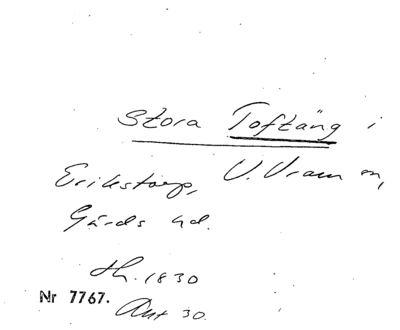 Stora Toftäng i
Erikstorp, V. Vram sn,
Gärds hd.
th. 1830
Nr 7767.
Akt 30.